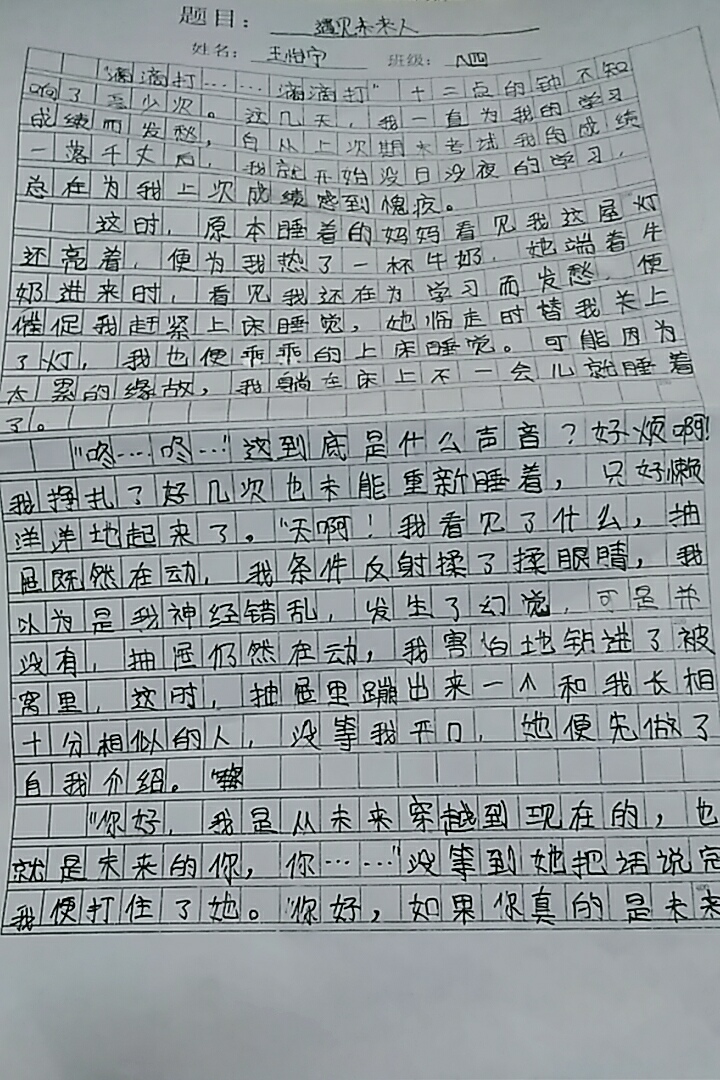 题目： 遇见未来人
姓名： 王怡宁 班级： 八四
“滴滴打……滴滴打”十二点的钟不知
响了多少次。这几天，我一直为我的学习
成绩而发愁，自从上次期末考试我的成绩
一落千丈后，我就开始没日没夜的学习，
总在为我上次成绩感到愧疚。
这时，原本睡着的妈妈看见我这屋灯
还亮着，便为我热了一杯牛奶，她端着牛
奶进来时，看见我还在为学习而发愁，便
催促我赶紧上床睡觉，她临走时替我关上
了灯，我也便乖乖的上床睡觉。可能因为
太累的缘故，我躺在床上不一会儿就睡着
了。
“咚……咚…”这到底是什么声音？好烦啊！
我挣扎了好几次也未能重新睡着，只好懒
洋洋地起来了。“天啊！我看见了什么，抽
屉既然在动，我条件反射揉了揉眼睛，我
以为是我神经错乱，发生了幻觉，可是并
没有，抽屉仍然在动，我害怕地钻进了被
窝里，这时，抽屉里蹦出来一个和我长相
十分相似的人，没等我开口，她便先做了
自我介绍。
“你好，我是从未来穿越到现在的，也
就是未来的你，你……”没等到她把话说完
我便打住了她。“你好，如果你真的是未来